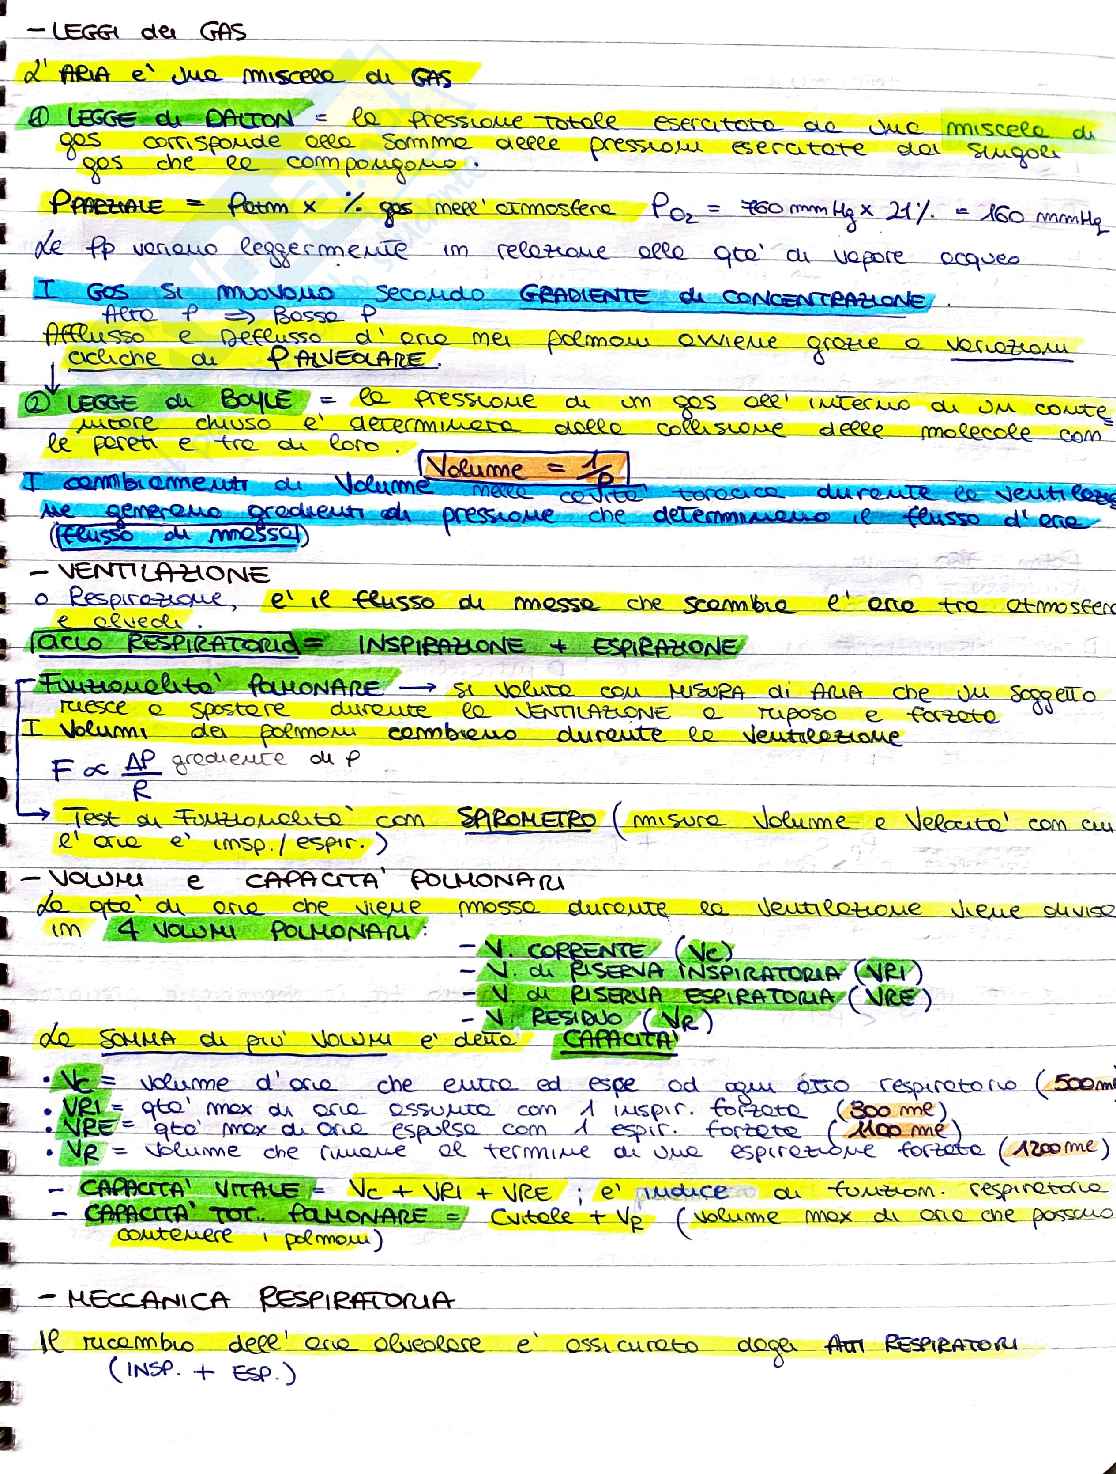 - LEGGI dei GAS
L'ARIA e' una miscela di GAS
① LEGGE di DALTON = la pressione totale esercitata da una miscela di
gas corrisponde alla somma delle pressioni esercitate dai singoli
gas che la compongono.
P PARZIALE = Patm x % gas nell'atmosfera P O2 = 760 mmHg x 21% = 160 mmHg
Le Pp variano leggermente in relazione alla qta' di vapore acqueo
I GAS si muovono secondo GRADIENTE di CONCENTRAZIONE.
Alta P ⇒ Bassa P
Afflusso e Deflusso d'aria nei polmoni avviene grazie a variazioni
cicliche di P ALVEOLARE.
② LEGGE di BOYLE = la pressione di un gas all'interno di un conte=
nitore chiuso e' determinata dalla collisione delle molecole con
le pareti e tra di loro.
Volume = 1/P
I cambiamenti di Volume nella cavita' toracica durante la ventilazio
ne generano gradienti di pressione che determinano il flusso d'aria
(flusso di massa)
- VENTILAZIONE
o Respirazione, e' il flusso di massa che scambia l'aria tra atmosfera
e alveoli.
CICLO RESPIRATORIO = INSPIRAZIONE + ESPIRAZIONE
Funzionalita' POLMONARE → si valuta con MISURA di ARIA che un soggetto
riesce a spostare durante la VENTILAZIONE a riposo e forzata
I Volumi dei polmoni cambiano durante la ventilazione
F ∝ ΔP/R gradiente di P
→ Test di Funzionalita' con SPIROMETRO (misura Volume e Velocita' con cui
l'aria e' insp./espir.)
- VOLUMI e CAPACITA' POLMONARI
La qta' di aria che viene mossa durante la ventilazione viene divisa
in 4 VOLUMI POLMONARI:
- V. CORRENTE (Vc)
- V. di RISERVA INSPIRATORIA (VRI)
- V. di RISERVA ESPIRATORIA (VRE)
- V. RESIDUO (VR)
La SOMMA di piu' VOLUMI e' detta CAPACITA'
• Vc = volume d'aria che entra ed esce ad ogni atto respiratorio (500ml
• VRI = qta' max di aria assunta con 1 inspir. forzata (300 ml)
• VRE = qta' max di aria espulsa con 1 espir. forzata (1100 ml)
• VR = volume che rimane al termine di una espirazione forzata (1200ml)
- CAPACITA' VITALE = Vc + VRI + VRE ; e' indice di funzion. respiratoria
- CAPACITA' TOT. POLMONARE = Cvitale + VR (volume max di aria che possono
contenere i polmoni)
- MECCANICA RESPIRATORIA
Il ricambio dell'aria alveolare e' assicurato dagli ATTI RESPIRATORI
(INSP. + ESP.)